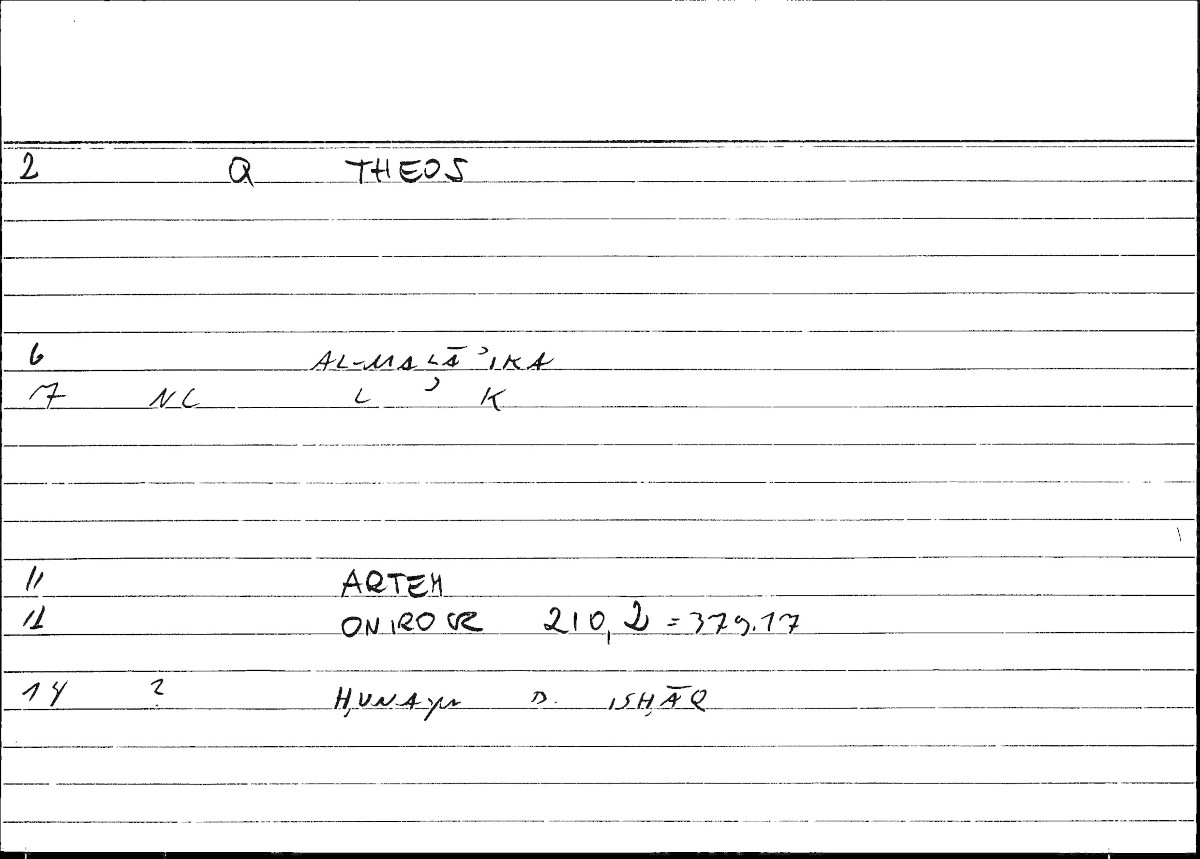 2 Q THEOS
6 AL-MALĀʾIKA
7 NC L ʾ K
11 ARTEM
12 ONIROCR 210,2 = 379.17
14 ? ḤUNAYN B. ISḤĀQ